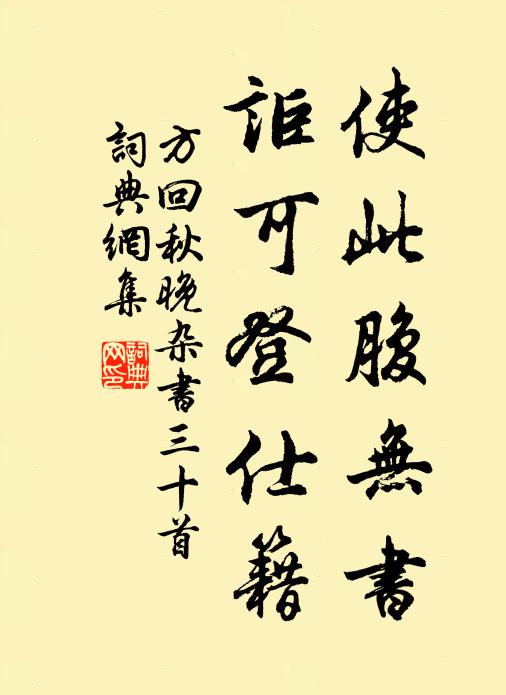 使此腹無書
詎可登仕籍
方回秋晚杂書三十首
詞典網集
詞典网印